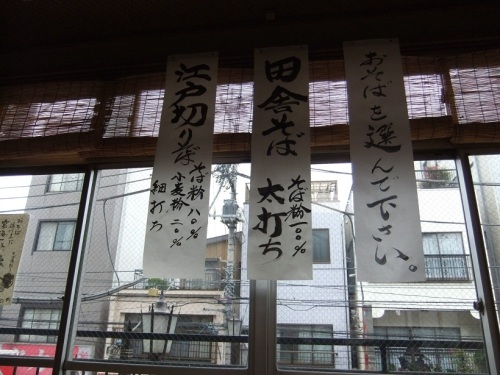 おそばを選んで下さい。
田舎そば
そば粉一〇〇%
太打ち
江戸切りそば
そば粉八〇%
小麦粉二〇%
細打ち